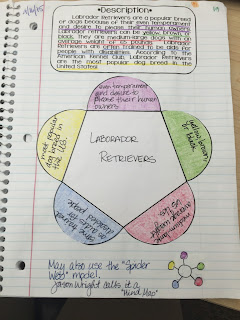 •Description•
Labrador Retrievers are a popular breed
of dogs because of their even temperament
and desire to please their human owners.
Labrador retrievers can be yellow, brown or
black. They are medium-large dogs with an
average weight of 65 pounds. Labrador
Retrievers are often trained to be aids for
people with disabilities. According to the
American Kennel Club, Labrador Retrievers
are the most popular dog breed in the
United States!
even temperament
and desire to
please their human
owners
most popular
dog breed in
the U.S.
yellow, brown,
or black
LABORADOR
RETRIEVERS
some trained
as aids for
disabled people
medium-large
average weight
65 lbs
May also use the "Spider
Web" model.
Jason Wright calls it a
"Mind Map"